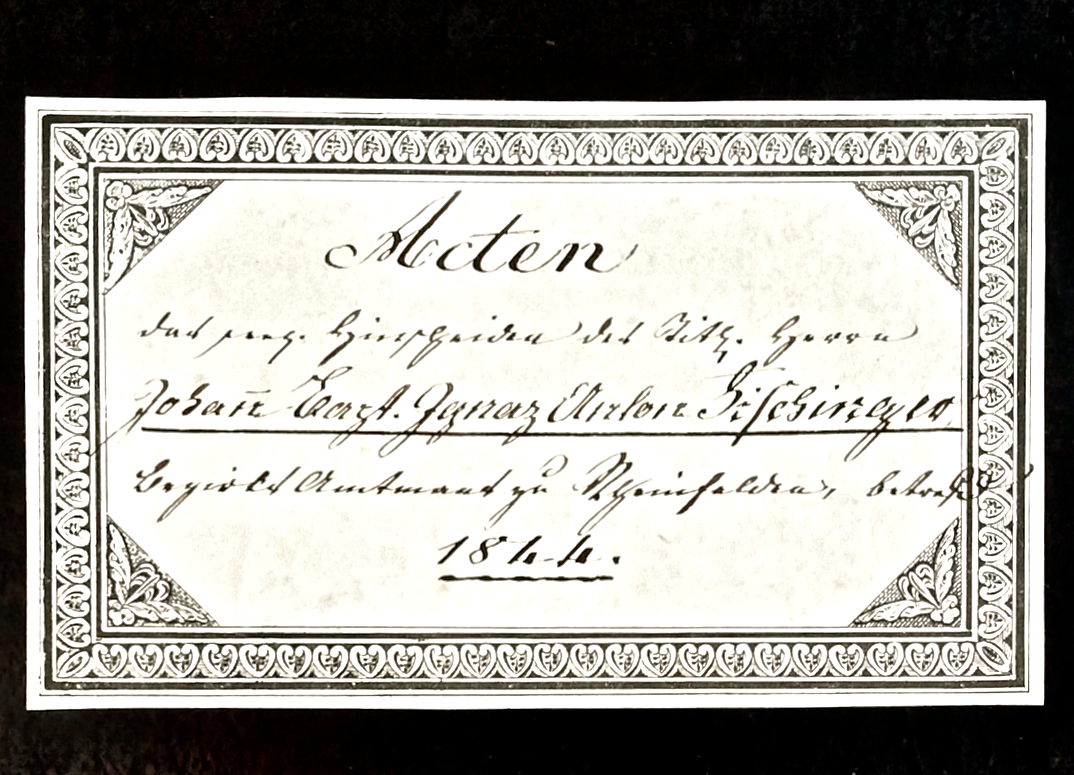 Acten
das seeg. Hinscheiden des Titl. Herrn
Johan̄ Bapt. Ignaz Anton Fischinger,
Bezirks Amtmans zu Rheinfelden, betreff
1844.